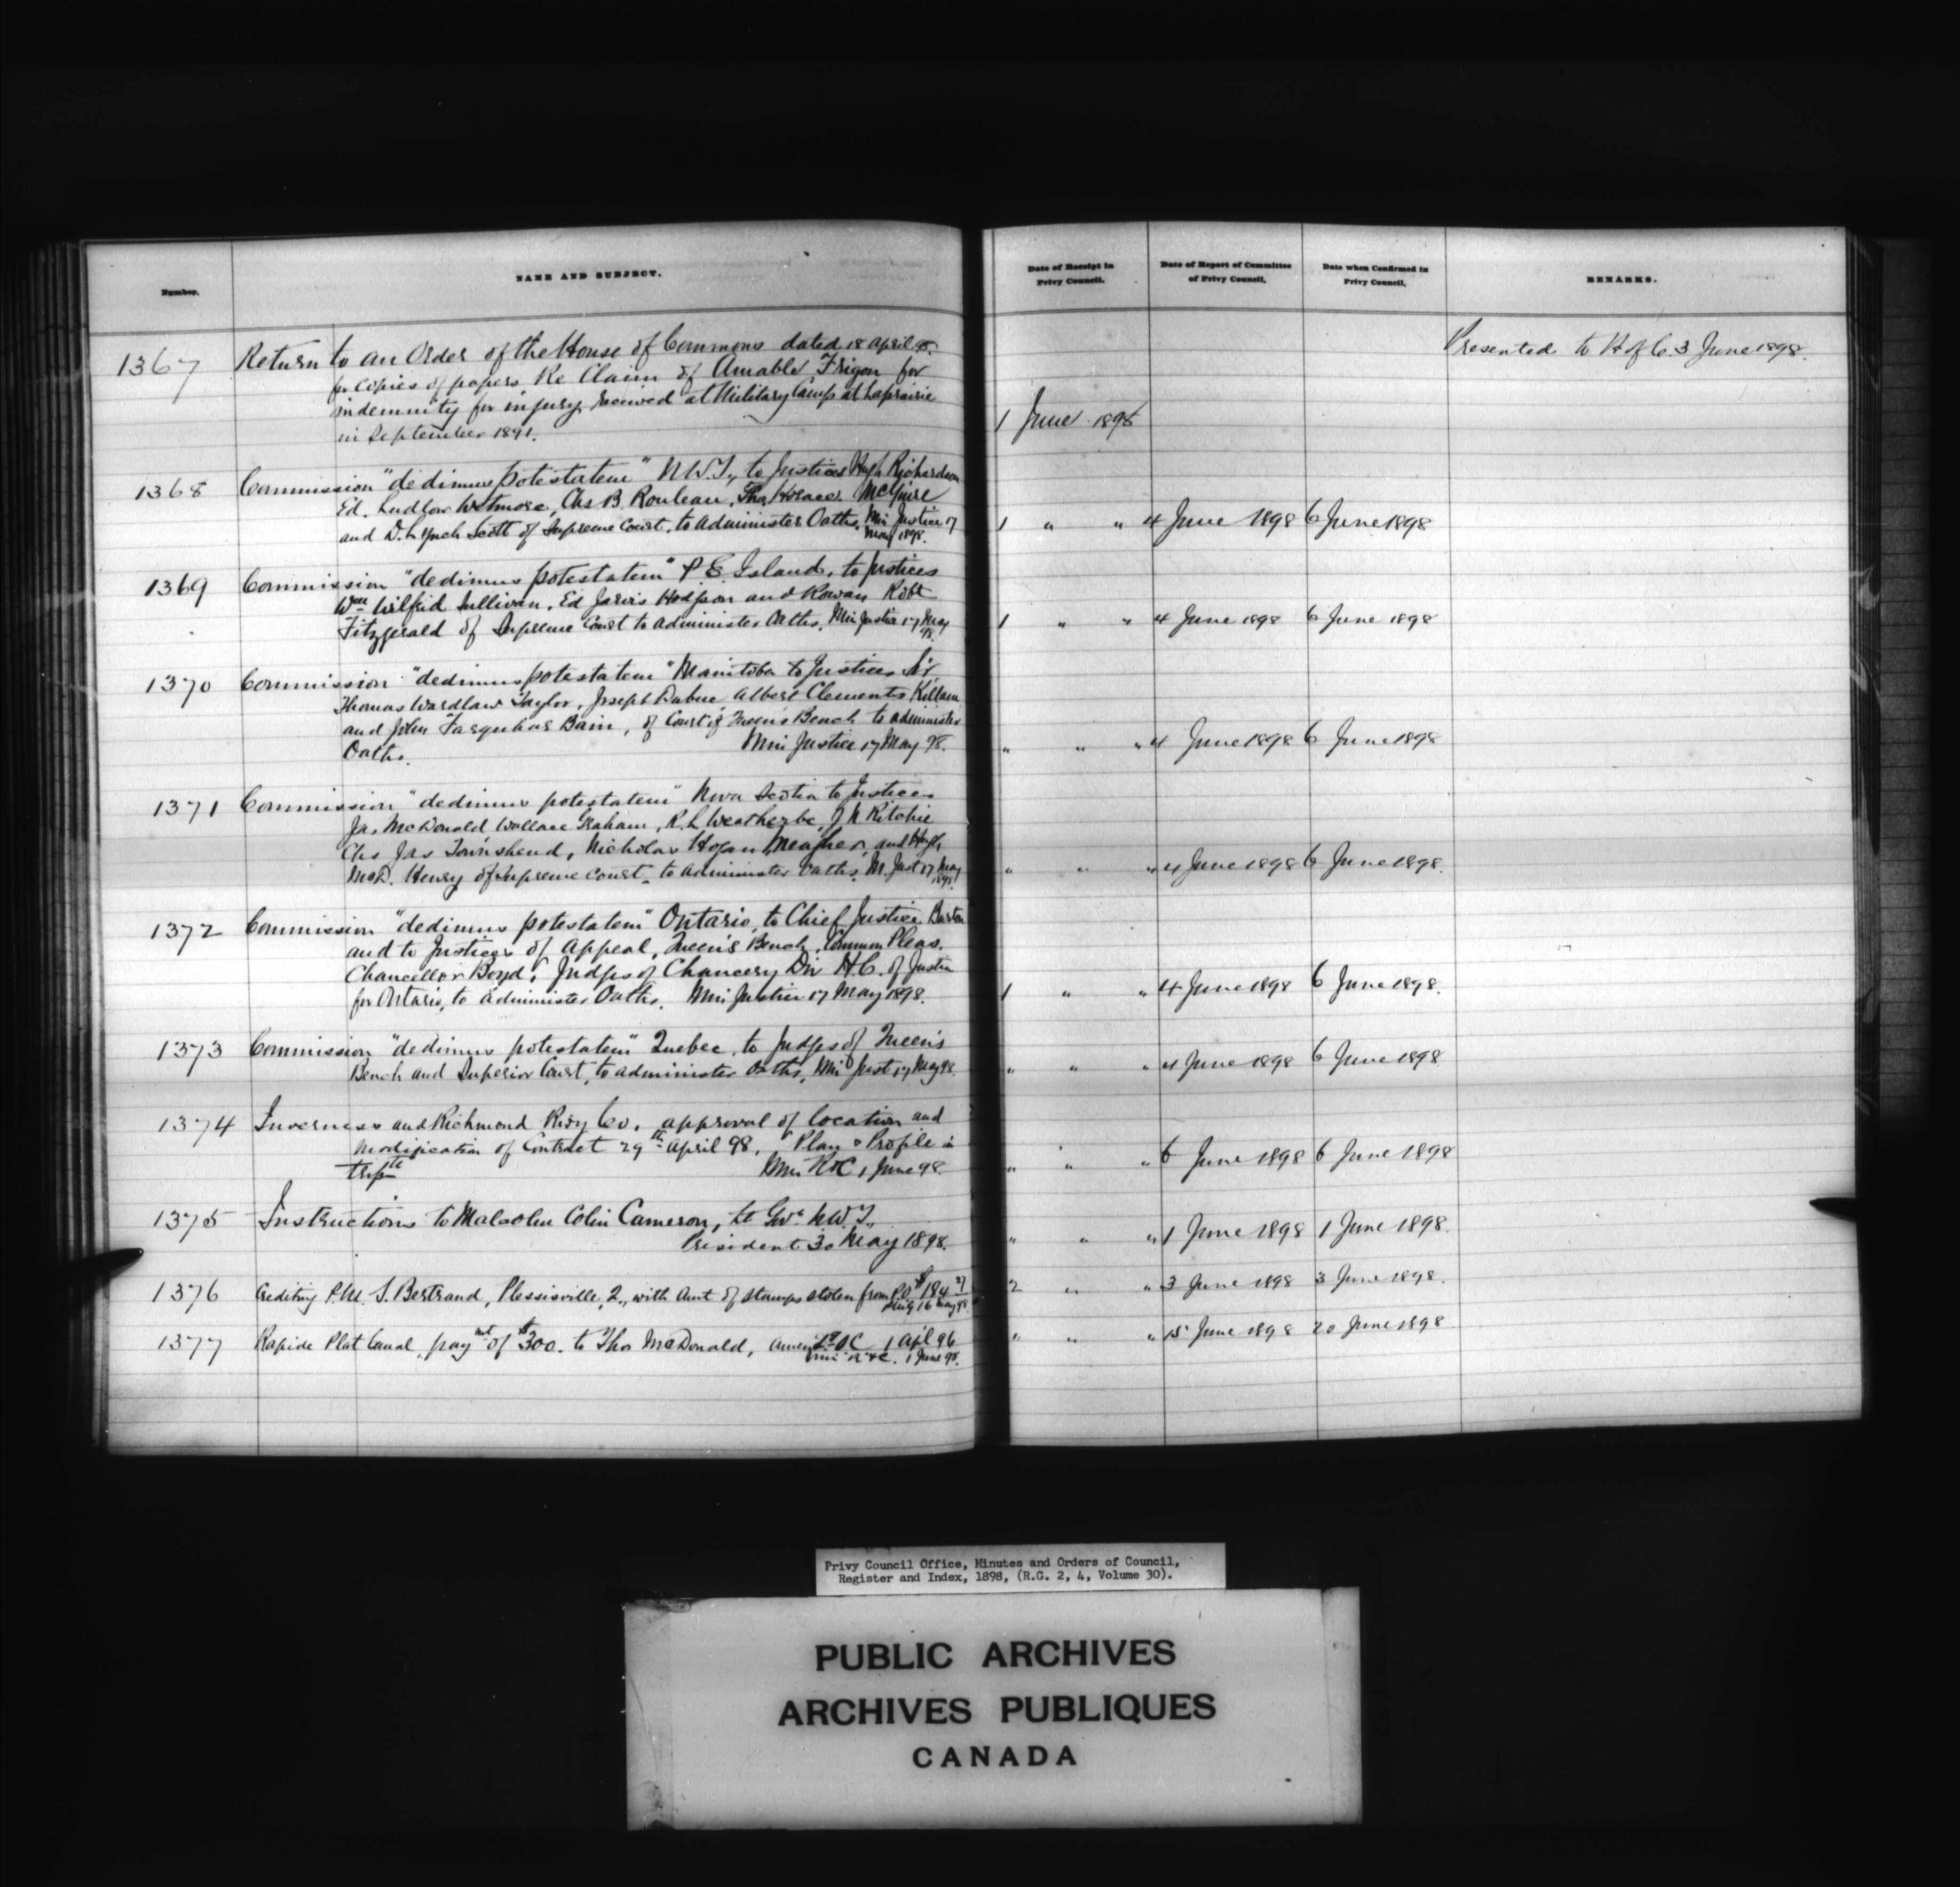 Number.
NAME AND SUBJECT.
Date of Receipt in Privy Council.
Date of Report of Committee of Privy Council,
Date when Confirmed in Privy Council,
REMARKS.
1367 Return to an Order of the House of Commons dated 18 April 98.
for copies of papers Re Claim of Amable Frigon for
indemnity for injury received at Military Camp at Laprairie
in September 1891.
1 June 1898
Presented to H of C. 3 June 1898.
1368 Commission "dedimus potestatem" N.W.T., to Justices Hugh Richardson
Ed. Ludlow Wetmore, Chs B. Rouleau, Thos Horace McGuire
and D. Lynch Scott of Supreme Court, to Administer Oaths, Min Justice 17
May 1898.
1 " " 4 June 1898 6 June 1898
1369 Commission "dedimus potestatem" P.E. Island, to Justices
Wm Wilfrid Sullivan, Ed Jarvis Hodgson and Rowan Robt
Fitzgerald of Supreme Court to Administer Oaths, Min Justice 17 May
98.
1 " " 4 June 1898 6 June 1898
1370 Commission "dedimus potestatem" Manitoba to Justices Sir
Thomas Wardlaw Taylor, Joseph Dubuc Albert Clements Killam
and John Farquhar Bain, of Court of Queen's Bench to administer
Oaths. Min Justice 17 May 98.
" " " 4 June 1898 6 June 1898
1371 Commission "dedimus potestatem" Nova Scotia to Justices
Jas McDonald Wallace Graham, R.L. Weatherbe, J N Ritchie
Chs Jas Townshend, Nicholas Hogan Meagher, and Hugh
McD. Henry of Supreme Court, to administer oaths. M. Just 17 May
1898.
" " " 4 June 1898 6 June 1898.
1372 Commission "dedimus potestatem" Ontario, to Chief Justice Burton
and to Justices of Appeal, Queen's Bench, Common Pleas,
Chancellor Boyd, Judges of Chancery Div H.C. of Justice
for Ontario, to administer Oaths. Min Justice 17 May 1898.
1 " " 4 June 1898 6 June 1898.
1373 Commission "dedimus potestatem" Quebec, to Judges of Queen's
Bench and Superior Court, to administer Oaths, Min Just 17 May 98.
" " " 4 June 1898 6 June 1898
1374 Inverness and Richmond Rwy Co. approval of location and
modification of Contract 29th April 98, Plan & Profile in
tripte Min R&C 1 June 98.
" " " 6 June 1898 6 June 1898
1375 Instructions to Malcolm Colin Cameron, Lt Govr N.W.T.,
President 30 May 1898.
" " " 1 June 1898 1 June 1898.
1376 Crediting P.M. S. Bertrand, Plessisville, Q., with Amt of stamps stolen from P.O. $184.27
16 May 98
2 " " 3 June 1898 3 June 1898.
1377 Rapide Plat Canal, paymt of $300. to Thos McDonald, OC 1 Apl 96
Min R&C. 1 June 98.
" " " 15 June 1898 20 June 1898
Privy Council Office, Minutes and Orders of Council,
Register and Index, 1898, (R.G. 2, 4, Volume 30).
PUBLIC ARCHIVES
ARCHIVES PUBLIQUES
CANADA